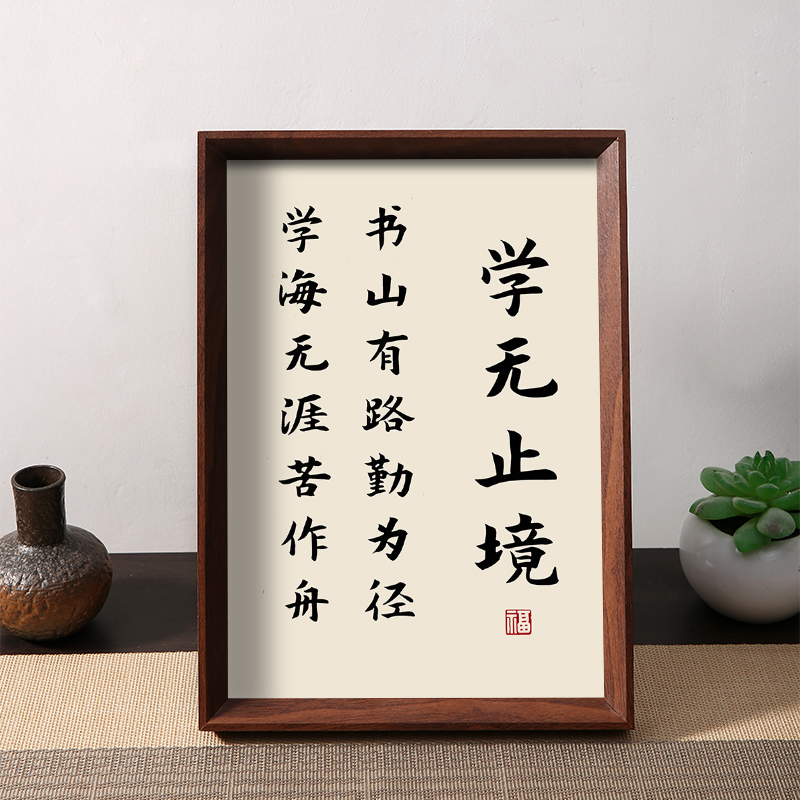 学无止境
书山有路勤为径
学海无涯苦作舟
福